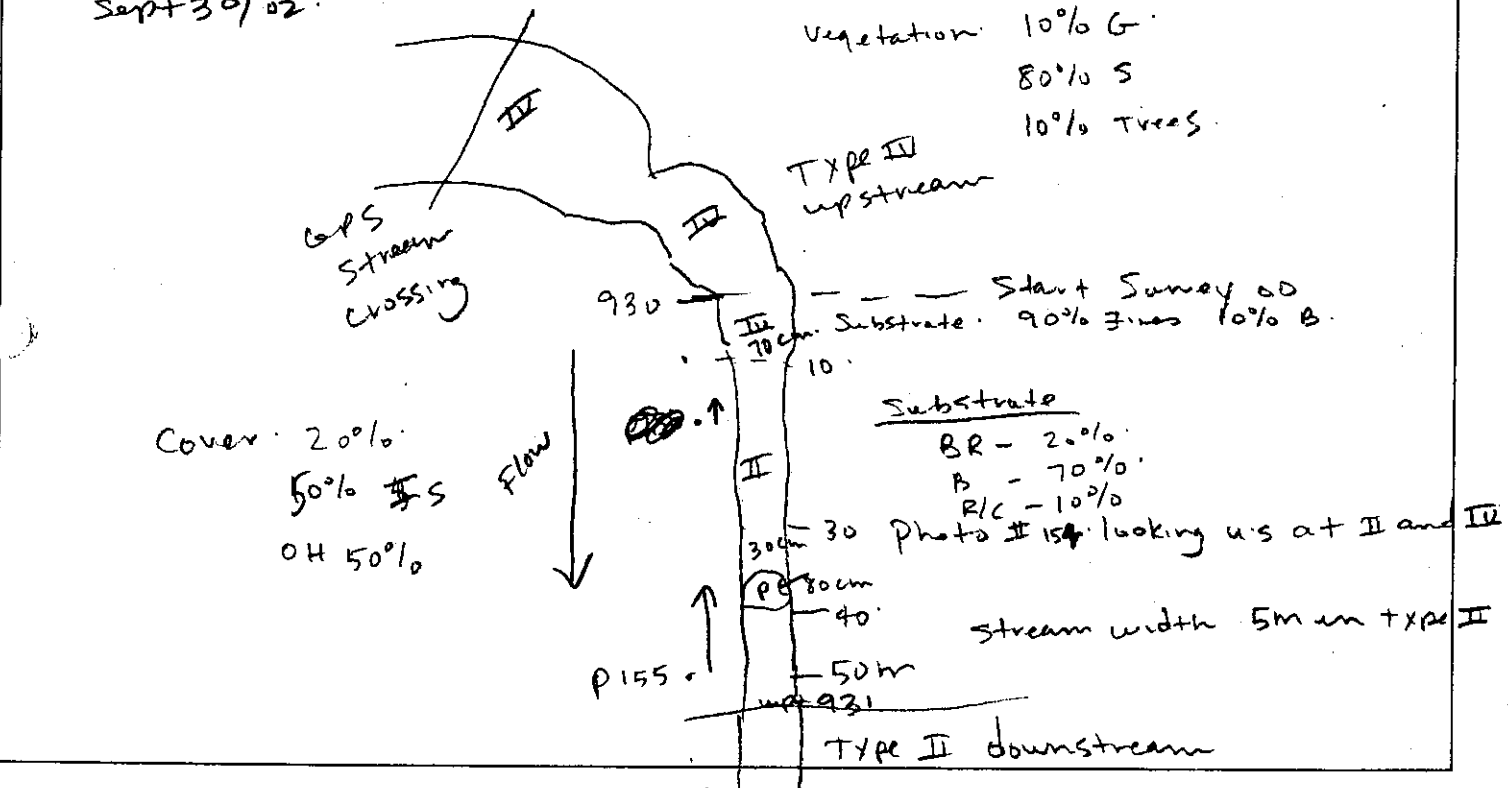 Sept 30/02.
Vegetation. 10% G.
80% S
10% Trees.
IV
Type IV
upstream
IV
GPS
stream
crossing
930 — — — Start Survey 00
IV
70cm. Substrate. 90% Fines 10% B.
10.
Substrate
BR - 20%.
B - 70%.
R/C - 10%
Cover. 20%.
50% S
OH 50%
Flow
II
30 Photo # 154. looking u.s at II and IV
30cm
80cm
40.
Stream width 5m in type II
P155.
50m
wpt 931
Type II downstream